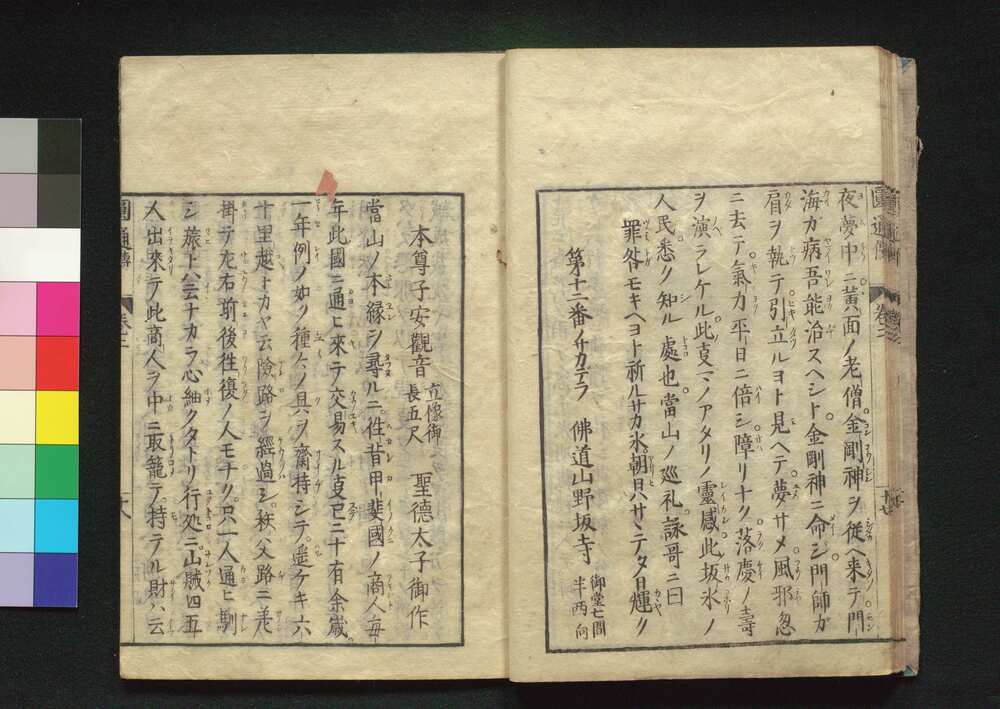 夜夢中ニ黄面ノ老僧金剛神ヲ從ヘ来テ門
海カ病吾能治スヘシト金剛神ニ命シ門師カ
肩ヲ執テ引立ルヨト見ヘテ夢サメ風邪忽
ニ去テ氣力平日ニ倍シ障リナク落慶ノ壽
ヲ演ラレケル此支コノアタリノ靈感此坂氷ノ
人民悉ク知ル處也當山ノ巡礼詠哥ニ曰
罪咎モキヘヨト祈ルサカ氷朝日ハサヽテタ日輝ク
第十二番ノサカデラ 佛道山野坂寺 御堂七間
半丙向
本尊子安觀音 立像御
長五尺 聖德太子御作
當山ノ本縁ヲ尋ルニ徃昔甲斐國ノ商人毎
年此國ニ通ヒ來テ交易スル支已ニ十有余歳
一年例ノ如ク種々ノ具ヲ齎持シテ遥ケキ六
十里越トカヤ云險路ヲ經過シ秩父路ニ差
掛テ左右前後徃復ノ人モナク只一人通ヒ馴
シ旅トハ云ナカラ心細クタトリ行処ニ山賊四五
人出來テ此商人ヲ中ニ取籠テ持テル財ハ云
圓通傳 卷二